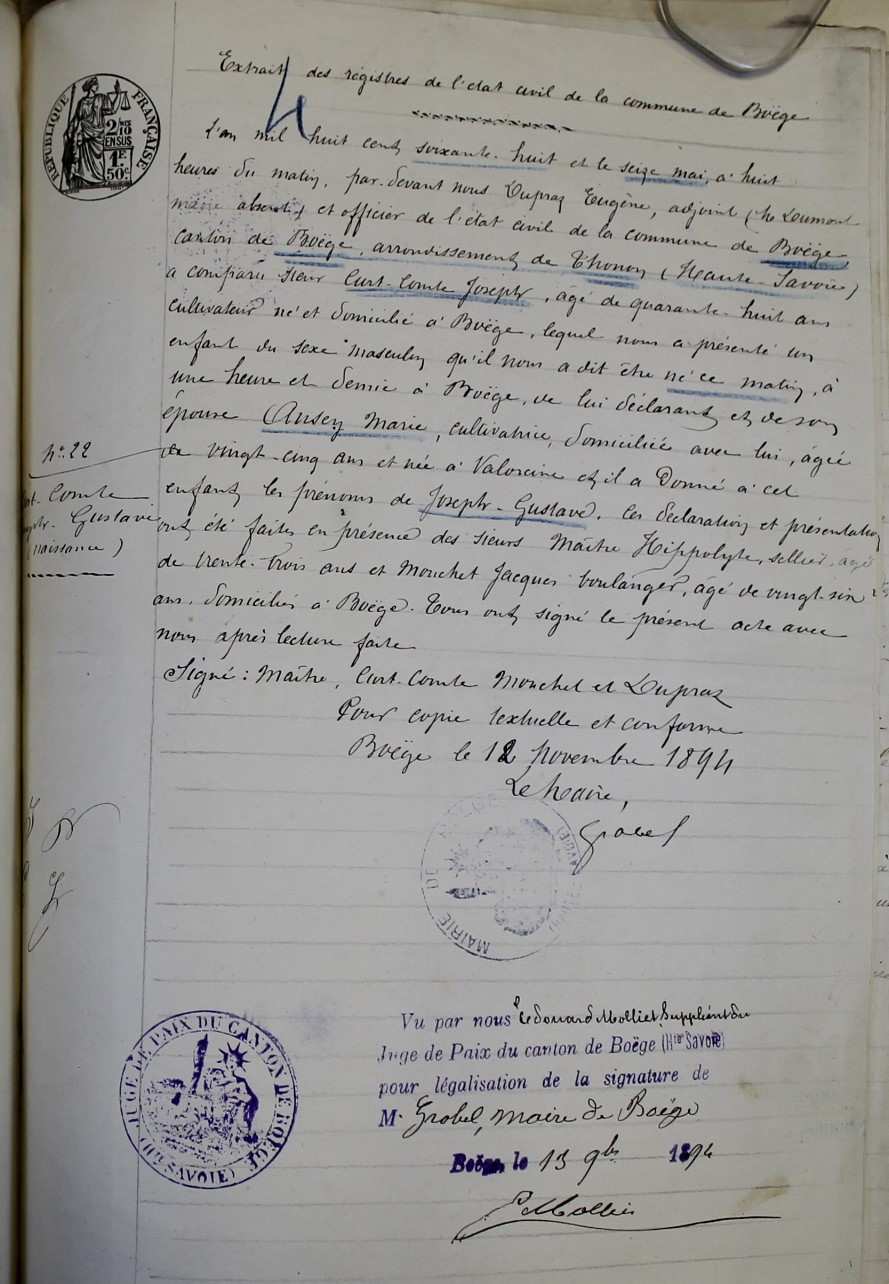 RÉPUBLIQUE FRANÇAISE
2/10ES
EN SUS
1F.
50c.
4
Extrait des régistres de l'état civil de la commune de Boëge
L'an mil huit cent soixante-huit et le seize mai, à huit
heures du matin, par-devant nous Dupraz Eugène, adjoint (Mr Dumont
maire absent) et officier de l'état civil de la commune de Boëge,
canton de Boëge, arrondissement de Thonon (Haute-Savoie)
a comparu sieur Curt-Comte Joseph, âgé de quarante-huit ans
cultivateur né et domicilié à Boëge, lequel nous a présenté un
enfant du sexe masculin qu'il nous a dit être né ce matin, à
une heure et demie à Boëge, de lui déclarant et de son
épouse (Ansey Marie, cultivatrice, domiciliée avec lui, âgée
de vingt-cinq ans et née à Valorcine et il a donné à cet
enfant les prénoms de Joseph-Gustave. Les déclaration et présentation
ont été faites en présence des sieurs Maître Hippolyte, sellier, âgé
de trente-trois ans et Mouchet Jacques boulanger, âgé de vingt-six
ans, domiciliés à Boëge. Tous ont signé le présent acte avec
nous après lecture faite
Signé: Maître, Curt-Comte Mouchet et Dupraz
Pour copie textuelle et conforme
Boëge le 12 novembre 1894
Le Maire,
Grobel
no. 22
Curt-Comte
Joseph-Gustave
(naissance)
MAIRIE DE BOËGE
(HTE SAVOIE)
JUGE DE PAIX DU CANTON DE BOËGE
(HTE SAVOIE)
Vu par nous Edouard Molliet Suppléant du
Juge de Paix du canton de Boëge (Hte Savoie)
pour légalisation de la signature de
M. Grobel, maire de Boëge
Boëge, le 13 9bre 1894
E Molliet